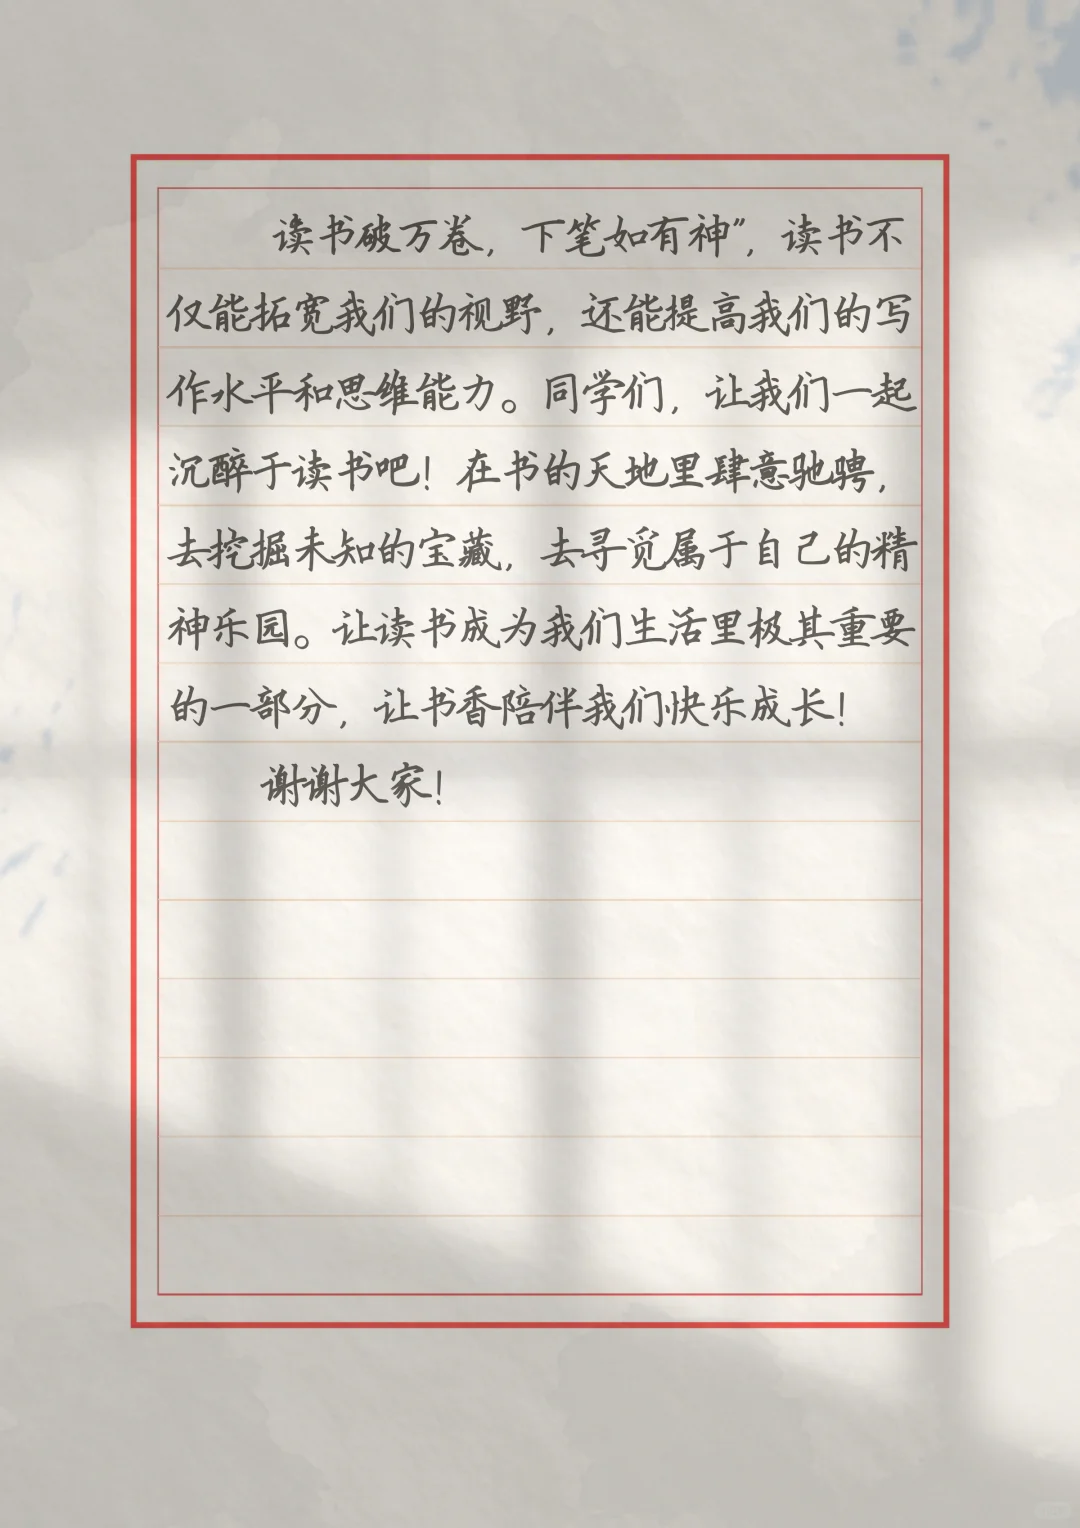 读书破万卷，下笔如有神”，读书不
仅能拓宽我们的视野，还能提高我们的写
作水平和思维能力。同学们，让我们一起
沉醉于读书吧！在书的天地里肆意驰骋，
去挖掘未知的宝藏，去寻觅属于自己的精
神乐园。让读书成为我们生活里极其重要
的一部分，让书香陪伴我们快乐成长！
谢谢大家！